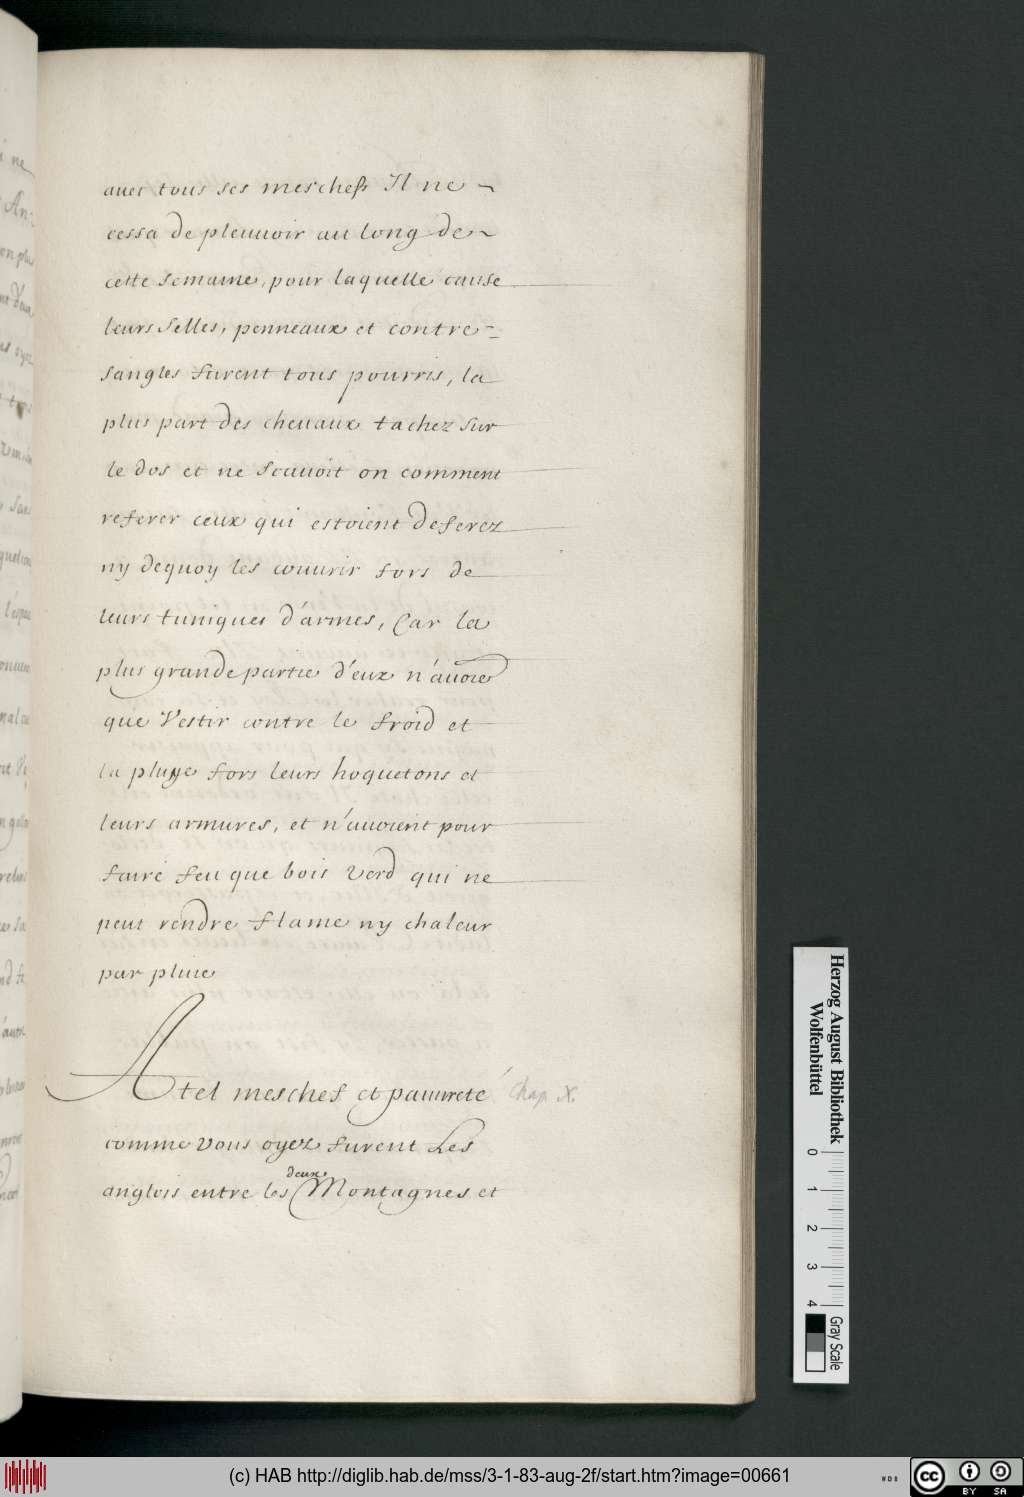 auec tous ses meschefs Il ne
cessa de pleuuoir au long de
cette semaine, pour laquelle cause
leurs selles, penneaux et contre-
sangles furent tous pourris, la
plus part des cheuaux tachez sur
le dos et ne scauoit on comment
referer ceux qui estoient deferez
ny dequoy les couurir fors de
leurs tuniques d'armes, Car la
plus grande partie d'eux n'auoie
que Vestir contre le froid et
la pluye fors leurs hoquetons et
leurs armures, et n'auoient pour
faire feu que bois Verd qui ne
peut rendre flame ny chaleur
par pluie
A tel meschef et pauureté Chap X.
comme vous oyez furent Les
deux
anglois entre les Montagnes et
Herzog August Bibliothek
Wolfenbüttel
0 1 2 3 4
Gray Scale
(c) HAB http://diglib.hab.de/mss/3-1-83-aug-2f/start.htm?image=00661
WDB
CC BY SA